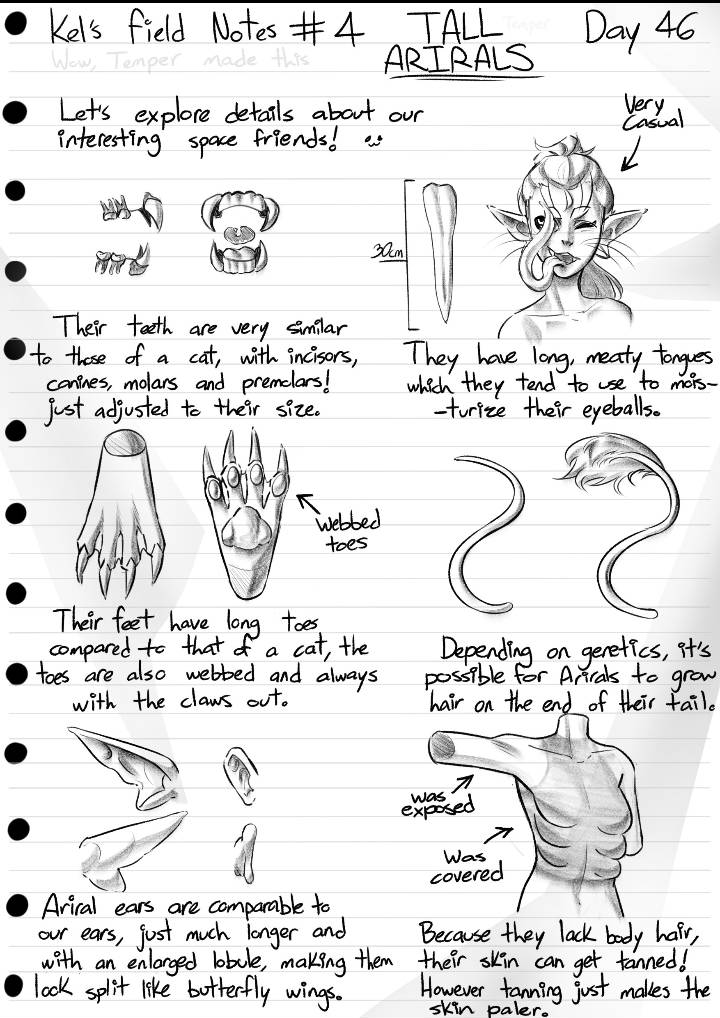 Kel's Field Notes #4
TALL
ARIRALS
Temper
Day 46
Wow, Temper made this
Let's explore details about our
interesting space friends!
Very
Casual
30cm
Their teeth are very similar
to those of a cat, with incisors,
canines, molars and premolars!
just adjusted to their size.
They have long, meaty tongues
which they tend to use to mois-
-turize their eyeballs.
Webbed
toes
Their feet have long toes
compared to that of a cat, the
toes are also webbed and always
with the claws out.
Depending on genetics, it's
possible for Arirals to grow
hair on the end of their tail.
was
exposed
Was
covered
Ariral ears are comparable to
our ears, just much longer and
with an enlarged lobule, making them
look split like butterfly wings.
Because they lack body hair,
their skin can get tanned!
However tanning just makes the
skin paler.